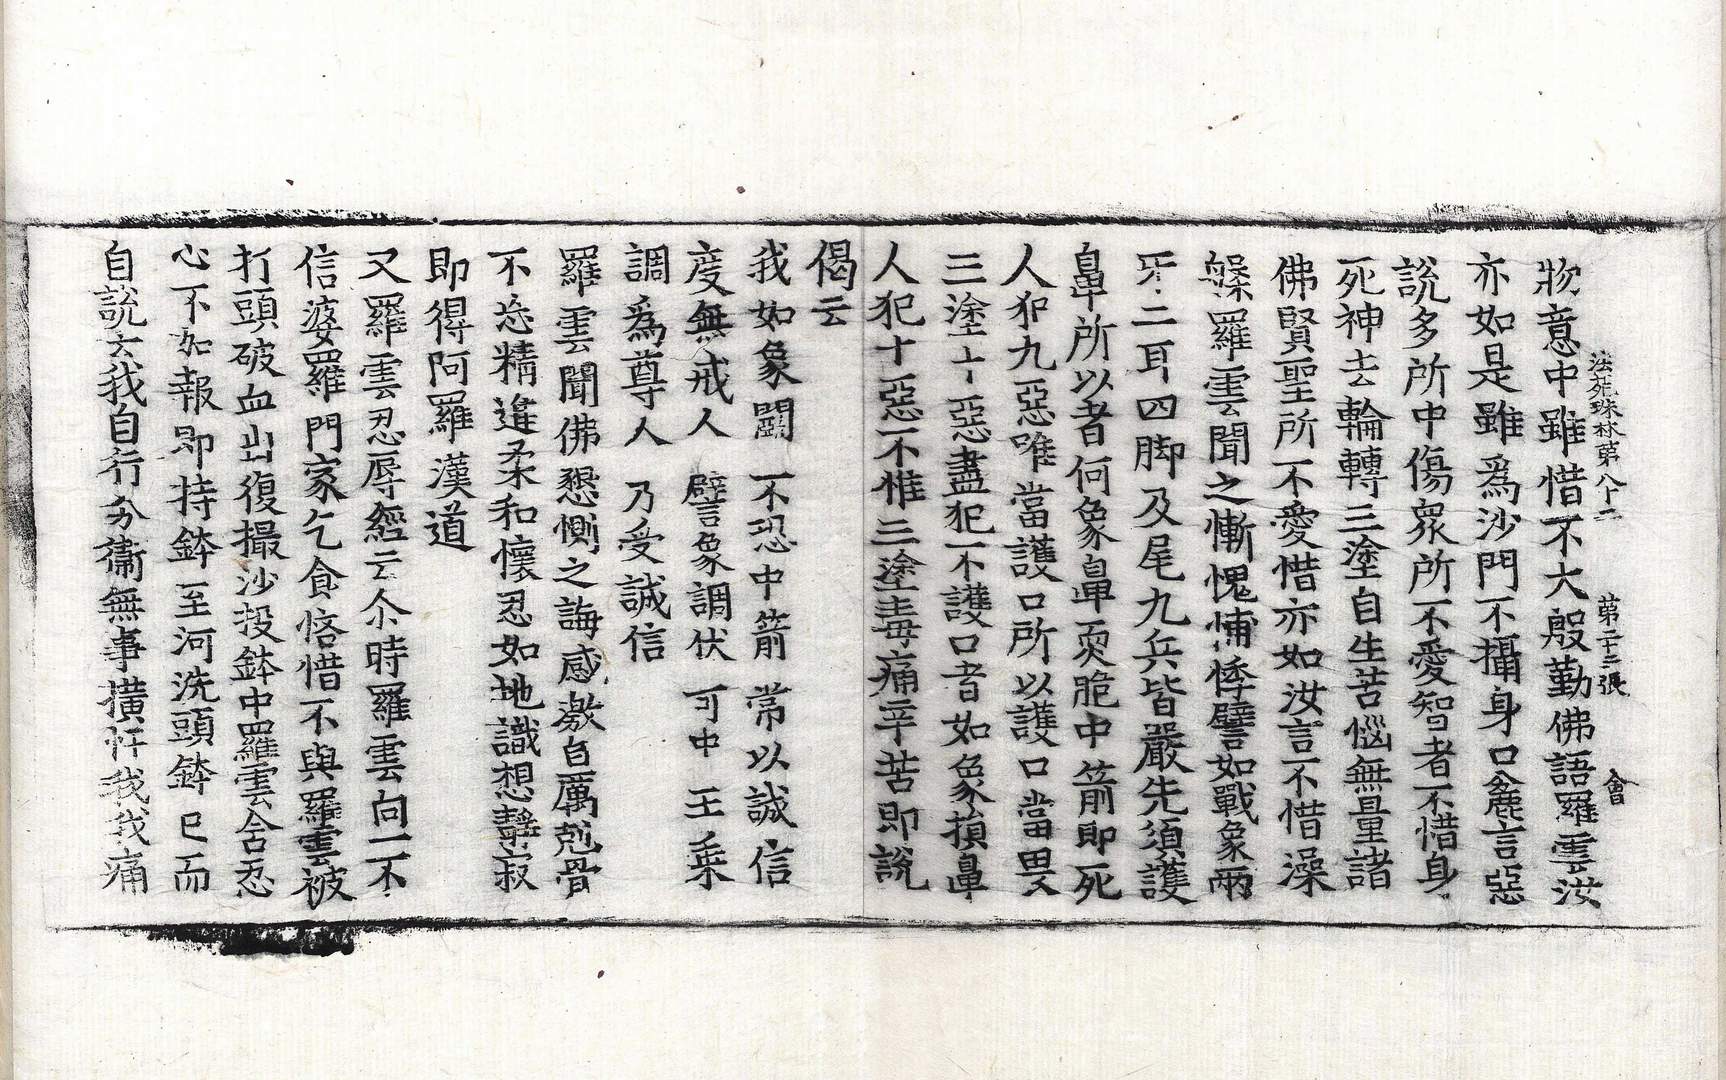 法苑珠林第八十二　第二十三張　會
物意中雖惜不大殷勤佛語羅雲汝
亦如是雖爲沙門不攝身口麁言惡
說多所中傷衆所不愛智者不惜身
死神去輪轉三塗自生苦惱無量諸
佛賢聖所不愛惜亦如汝言不惜澡
槃羅雲聞之慚愧怖悸譬如戰象兩
牙二耳四脚及尾九兵皆嚴先須護
鼻所以者何象鼻耎脆中箭即死
人犯九惡唯當護口所以護口當畏
三塗十惡盡犯不護口者如象損鼻
人犯十惡不惟三塗毒痛辛苦即說
偈云
我如象鬪　不恐中箭　常以誠信
度無戒人　譬象調伏　可中王乘
調爲尊人　乃受誠信
羅雲聞佛懇惻之誨感激自厲剋骨
不忘精進柔和懷忍如地識想靜寂
即得阿羅漢道
又羅雲忍辱經云尒時羅雲向一不
信婆羅門家乞食悋惜不與羅雲被
打頭破血出復撮沙投鉢中羅雲含忍
心不加報即持鉢至河洗頭鉢已而
自說云我自行分衞無事橫忤我我痛